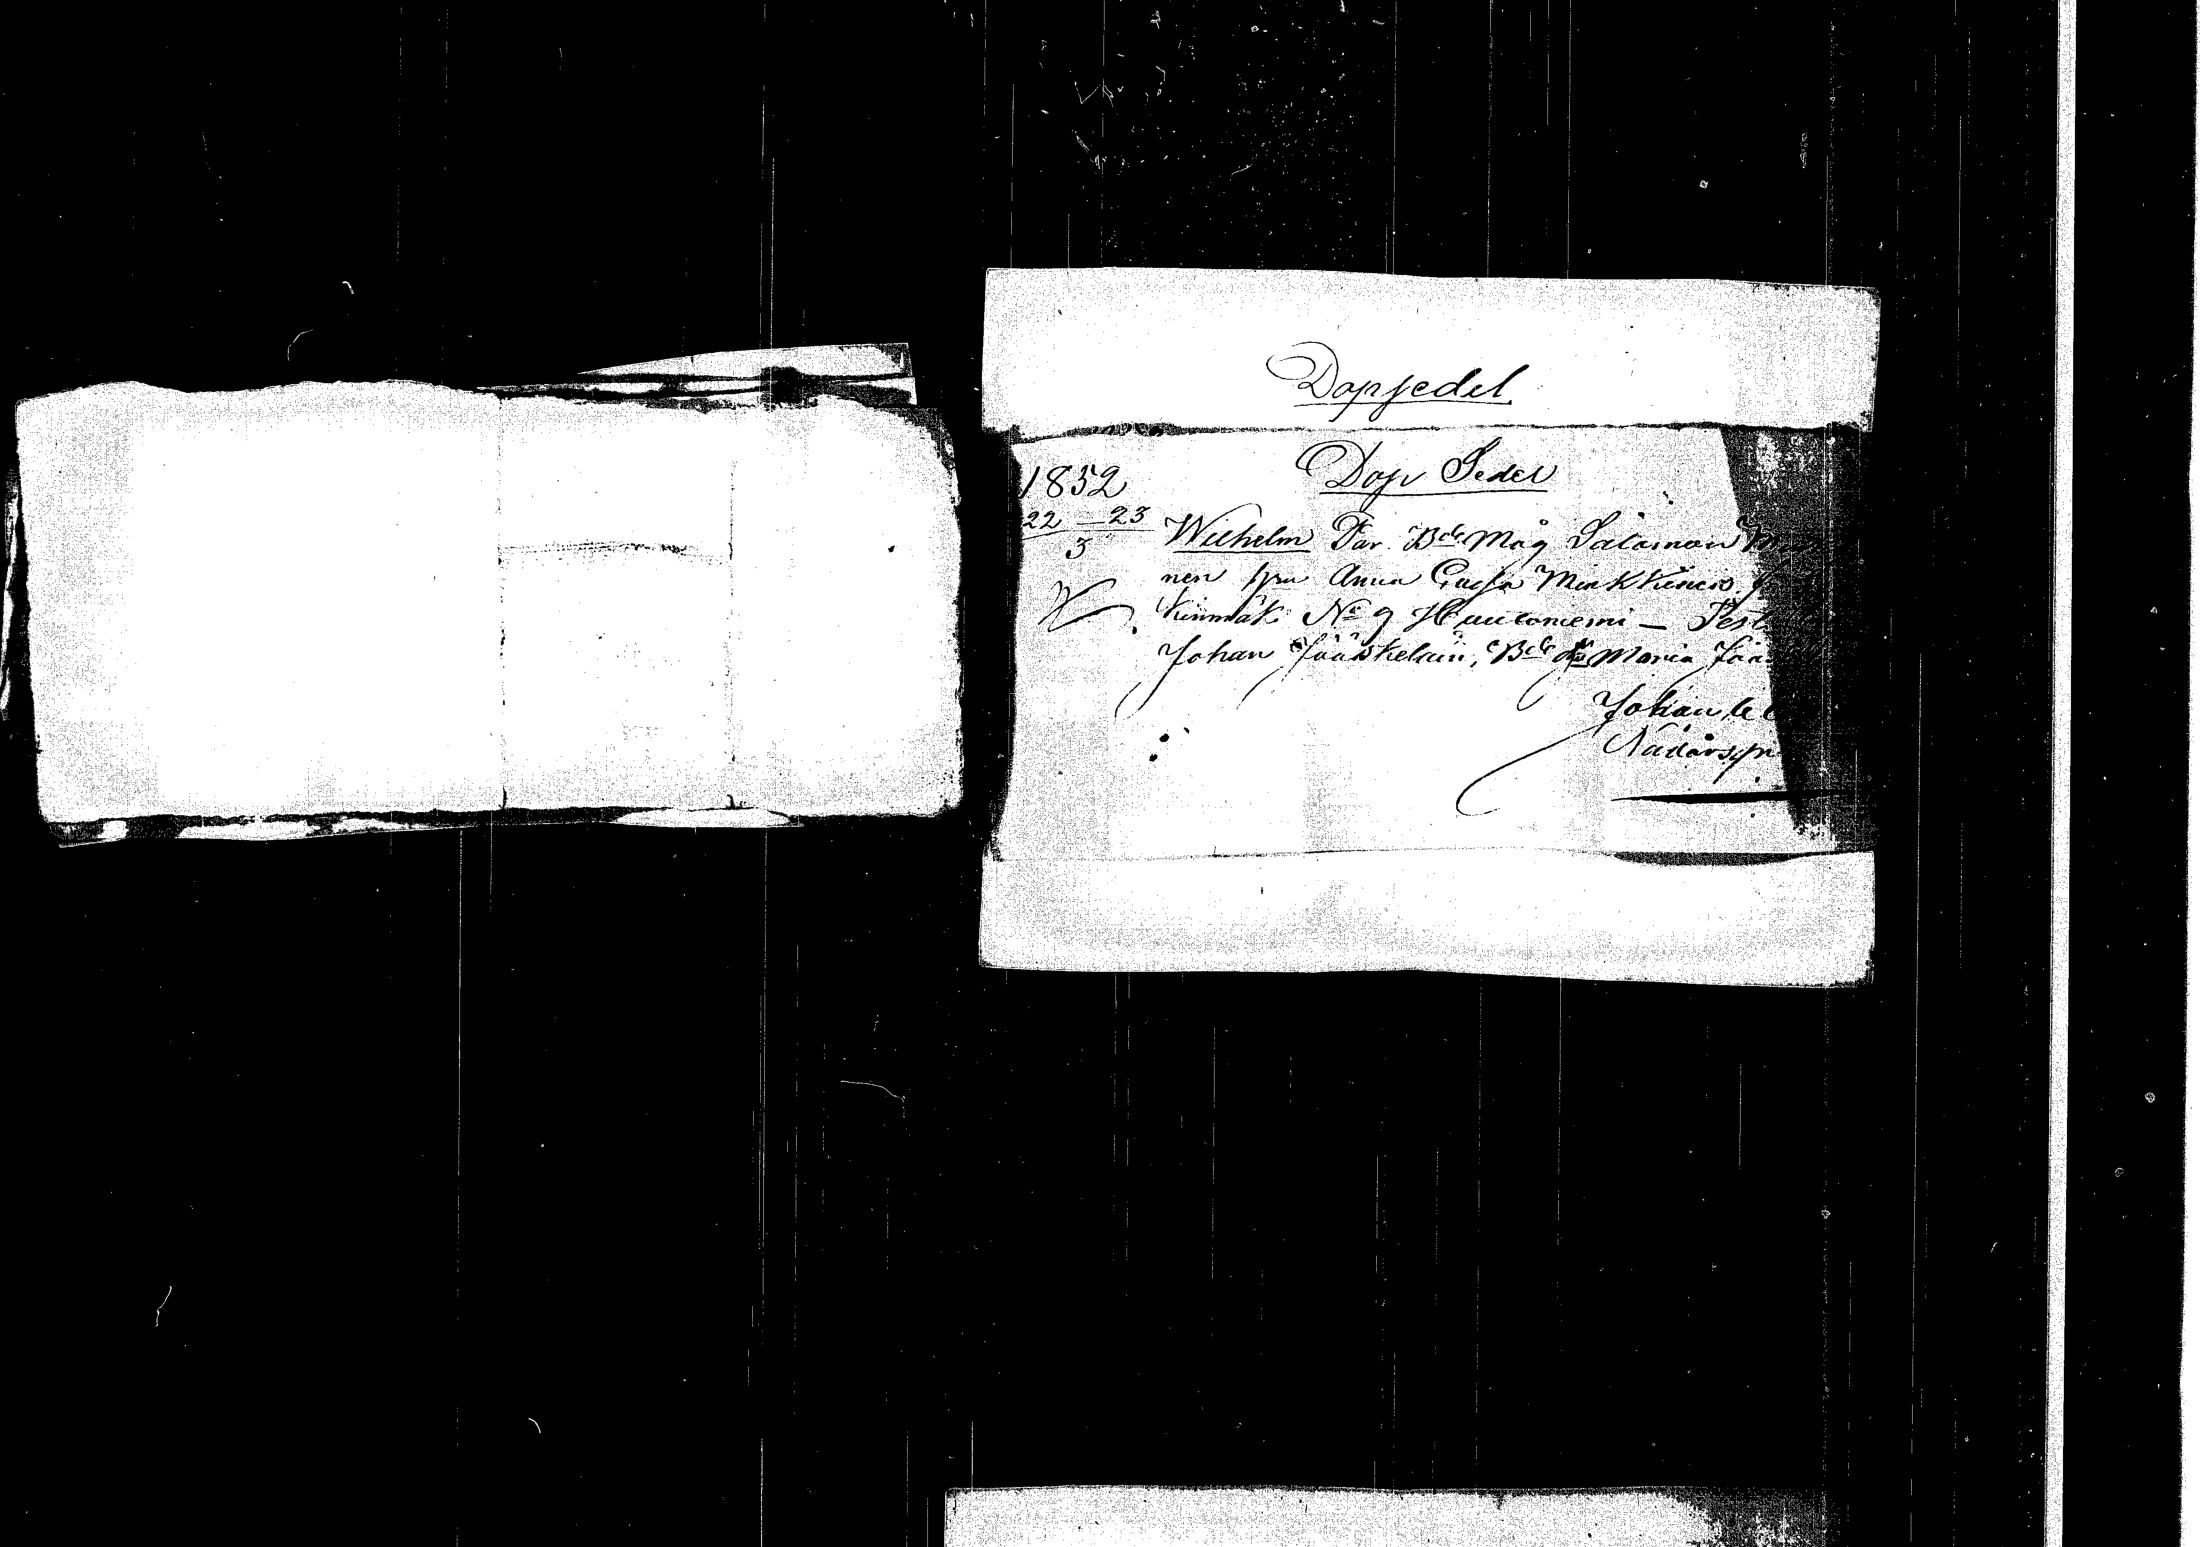 Dopsedel
Dop Sedel
1852
22 — 23
3
Wilhelm Far. Bde Måg Salomon
nen hru Anna Caisa Minkkinen
Kinmäki No 9 Hautoniemi — Test
Johan Jääskeläin, Bde Maria Jääs
Johan
Nådårspr